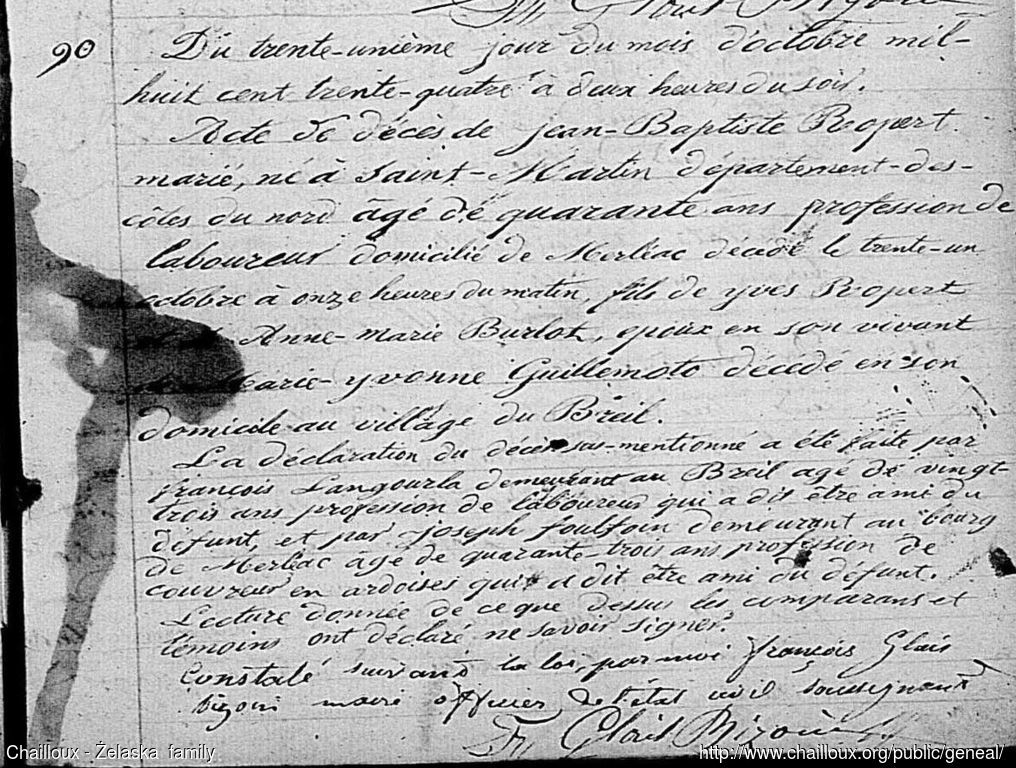 90
Du trente-unième jour du mois d'octobre mil-
huit cent trente-quatre à deux heures du soir.
Acte de décès de jean-Baptiste Ropert
marié, né à Saint-Martin département-des-
côtes du nord âgé de quarante ans profession de
laboureur domicilié de Merléac décédé le trente-un
octobre à onze heures du matin, fils de yves Ropert
Anne-Marie Burlot, époux en son vivant
Marie-yvonne Guillemoto décédé en son
domicile au village du Breil.
La déclaration du décès sus-mentionné a été faite par
françois Langourla demeurant au Breil agé de vingt-
trois ans profession de laboureur qui a dit être ami du
défunt, et par joseph foulfoin demeurant au bourg
de Merléac âgé de quarante-trois ans profession de
couvreur en ardoises qui a dit être ami du défunt.
Lecture donnée de ce que dessus les comparans et
témoins ont déclaré ne savoir signer.
Constaté suivant la loi, par moi françois Glais
Bizoin maire officier de l'état civil soussignant
Fr. Glais Bizoin
Chailloux - Żelaska family
http://www.chailloux.org/public/geneal/